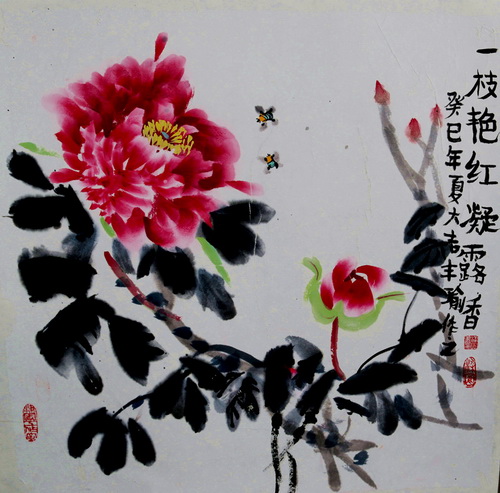 一枝艳红凝露香
癸巳年夏大吉丰瑜作之